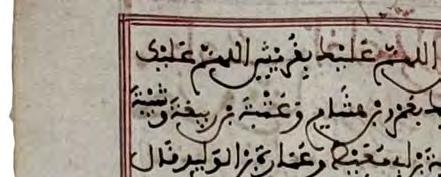 اللهم عليك بفريش اللهم عليك
بعمرو بن هشام وعتبة بن ربيعة وشيبة
معيط وعمارة بن الوليد فال